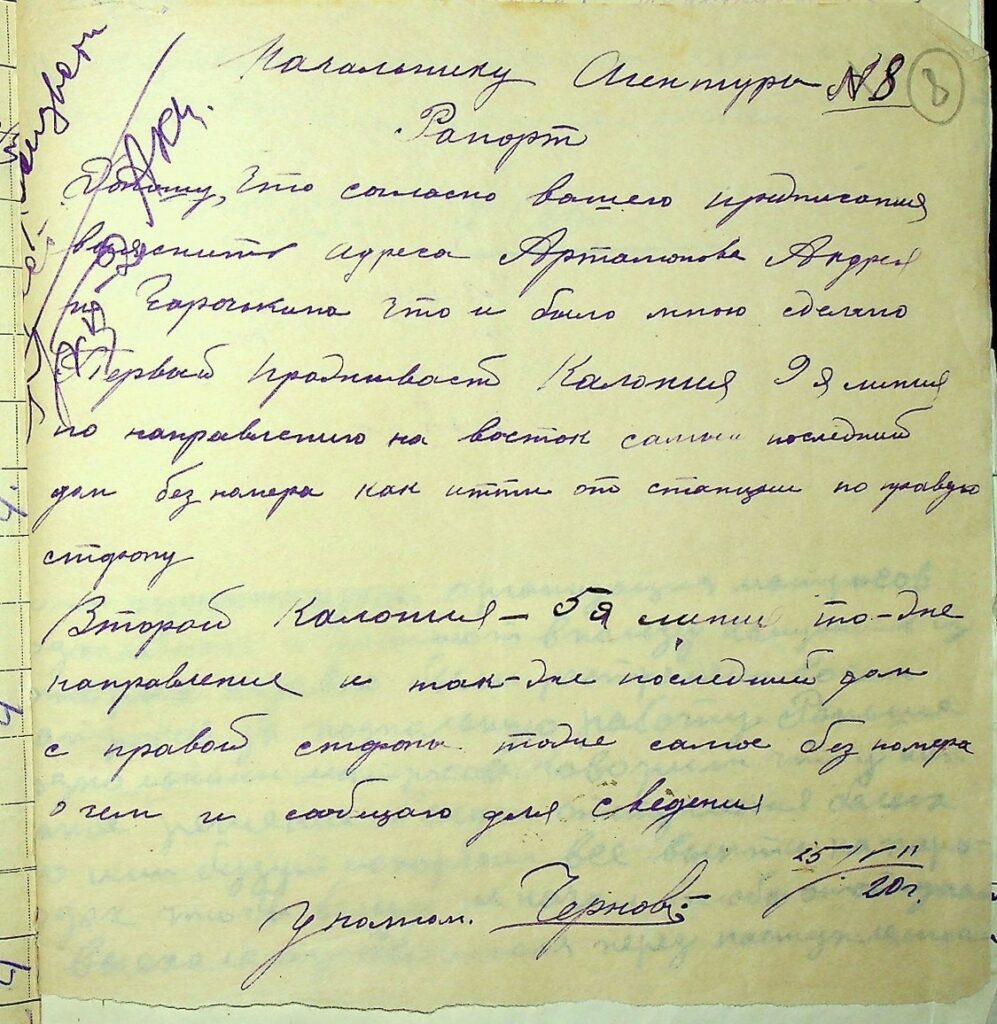 Начальнику Агентуры №8
8
Рапорт
Доношу, что согласно вашего предписания
выяснить адреса Арталионова Андрея
что и было мною сделано
Первый проживает Калония 9я линия
по направлению на восток самый последний
дом без номера как итти от станции по правую
сторону
Второй Калония – 5я линия то-же
направления и так-же последний дом
с правой стороны тоже самое без номера
о чем и сообщаю для сведения
Уполном. Чернов
15/II
20г.